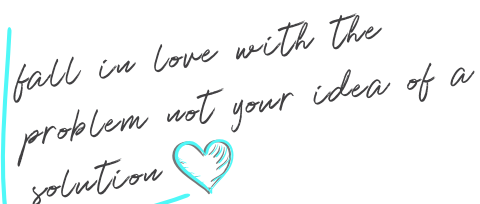 fall in love with the
problem not your idea of a
solution